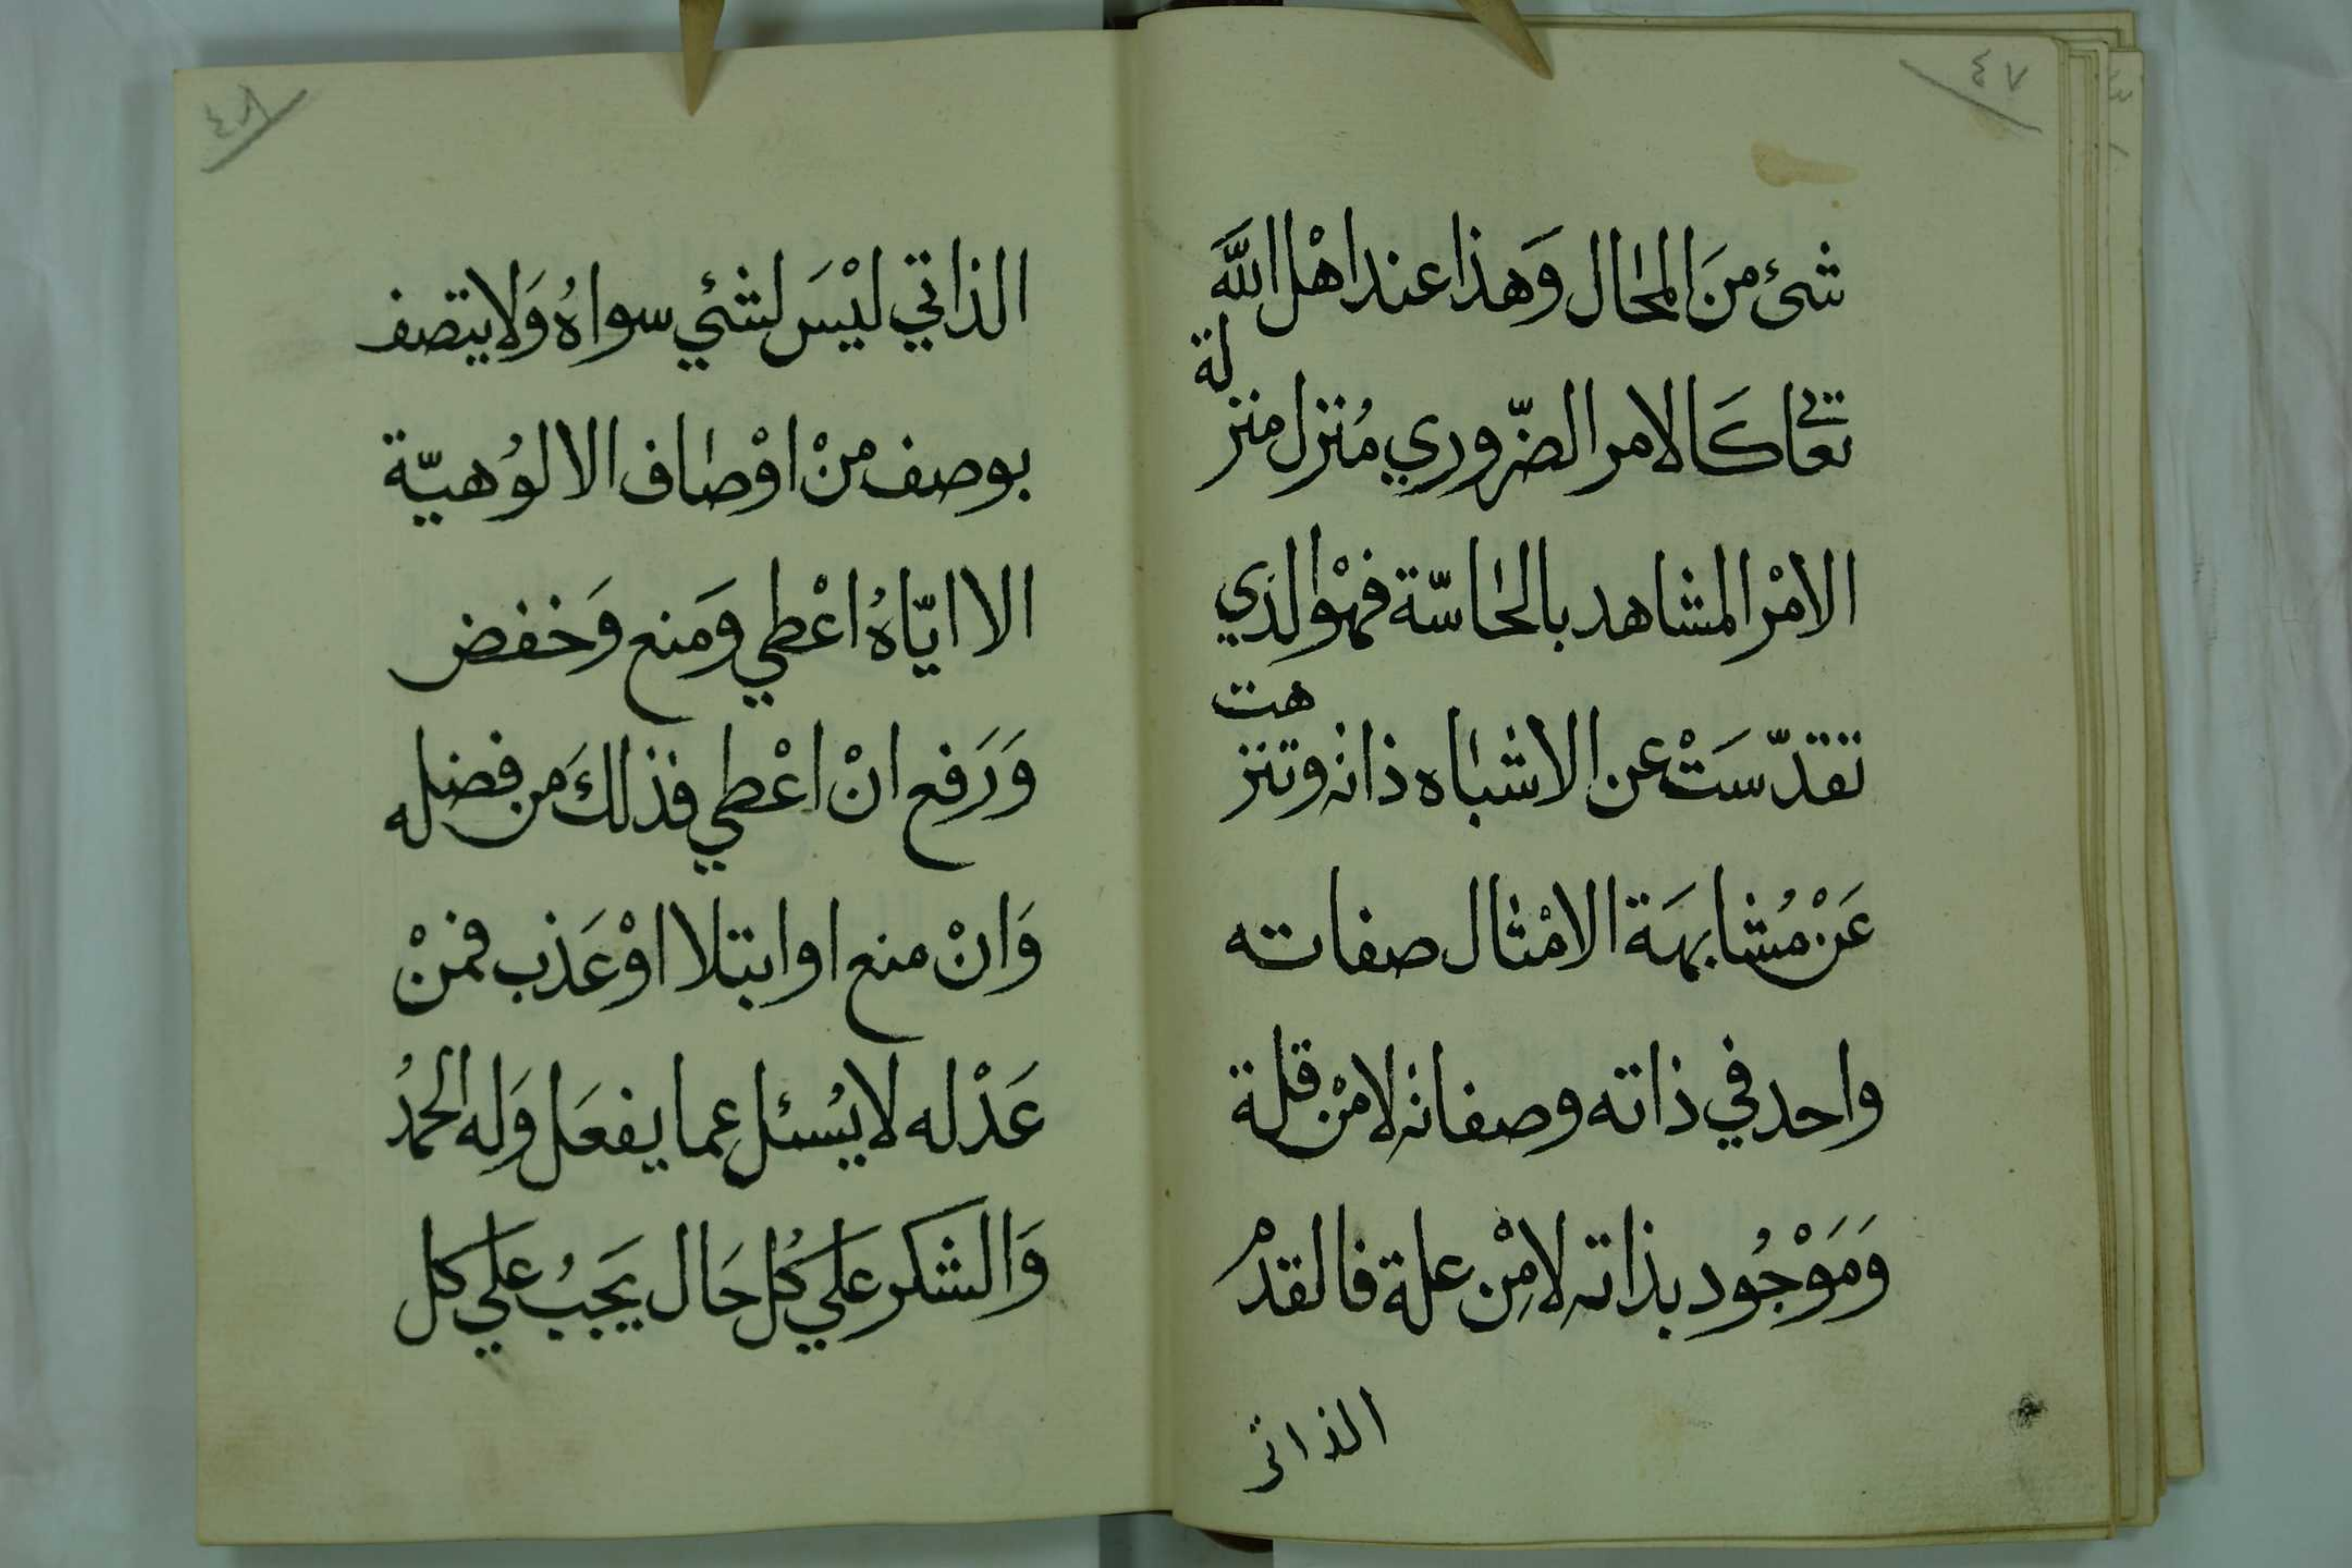 ٤٧
شئ منَ المحٰال وَهذا عند اهْل اللَّه
تعٰالى كَالامر الضّروري مُنزل منزلة
الامْر المشاهد بالحٰاسّة فهوْ الذي
تقدّسَتْ عن الاشبٰاه ذاته وتنزهت
عَنْ مُشابهَة الامْثٰال صفاته
واحد في ذاته وصفاته لا منْ قلة
وَمَوْجُود بذاته لا مِنْ علة فالقدمْ
الذاتي
٤٨
الذاتي ليْسَ لشئي سواهُ وَلا يتصف
بوصف منْ اوْصٰاف الالوُهيّة
الا ايّاهُ اعْطي وَمنع وَخفض
وَرَفع انْ اعْطي فذلكَ من فضله
وَانْ منع او ابتلا اوْ عَذب فمنْ
عَدْله لا يسْئل عما يفعَل وَله الحمدُ
وَالشكر عَلي كُل حَال يَجبُ عَلي كل